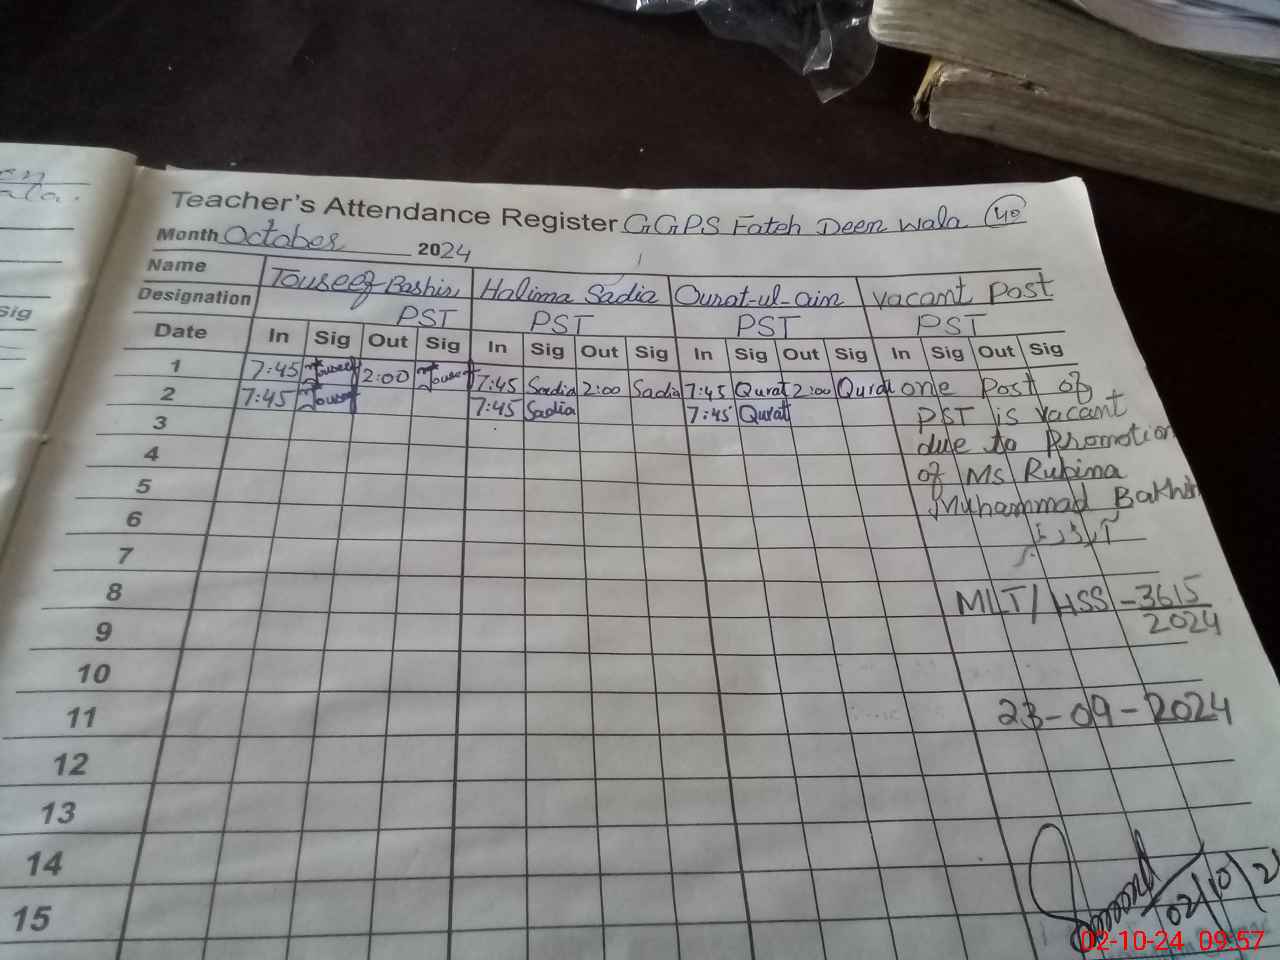 Teacher's Attendance Register GGPS Fateh Deen Wala 40
Month October 2024
Name Touseef Bashir Halima Sadia Qurat-ul-ain Vacant Post
Designation PST PST PST PST
Date In Sig Out Sig In Sig Out Sig In Sig Out Sig In Sig Out Sig
1 7:45 Touseef 2:00 Touseef 7:45 Sadia 2:00 Sadia 7:45 Qurat 2:00 Qurat one Post of
2 7:45 Touseef 7:45 Sadia 7:45 Qurat PST is vacant
3 due to Promotion
4 of Ms Rubina
5 Muhammad Bakhsh
6
7
8 MLT/HSS-3615
2024
9
10
11 23-09-2024
12
13
14
15 02/10/2
02-10-24 09:57